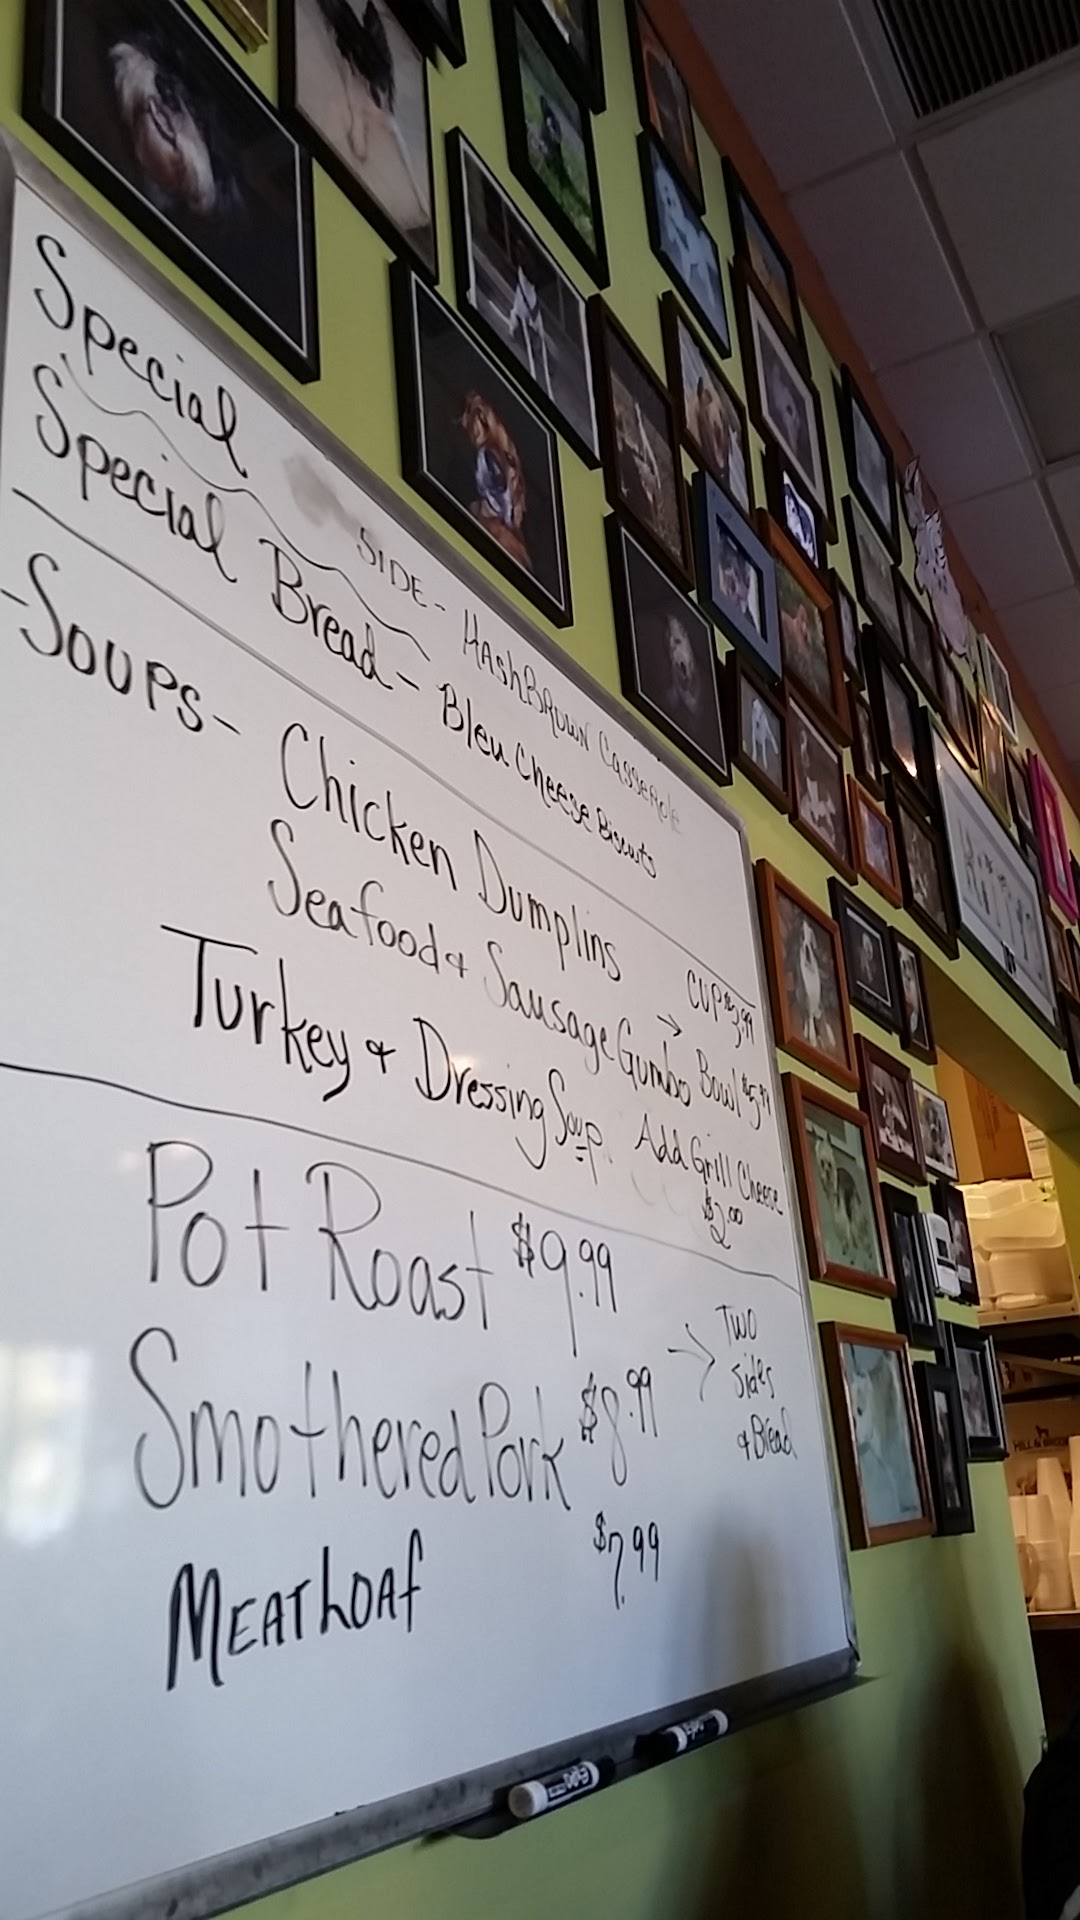 Special SIDE - HASHBROWN CASSEROLE
Special Bread - Bleu Cheese Biscuits
- Soups - Chicken Dumplins
Seafood & Sausage Gumbo
Turkey & Dressing Soup
→ CUP $3.99
Bowl $5.99
Add Grill Cheese
$2.00
Pot Roast $9.99
Smothered Pork $8.99
MEATLOAF $7.99
→ TWO
Sides
& Bread
EXPO